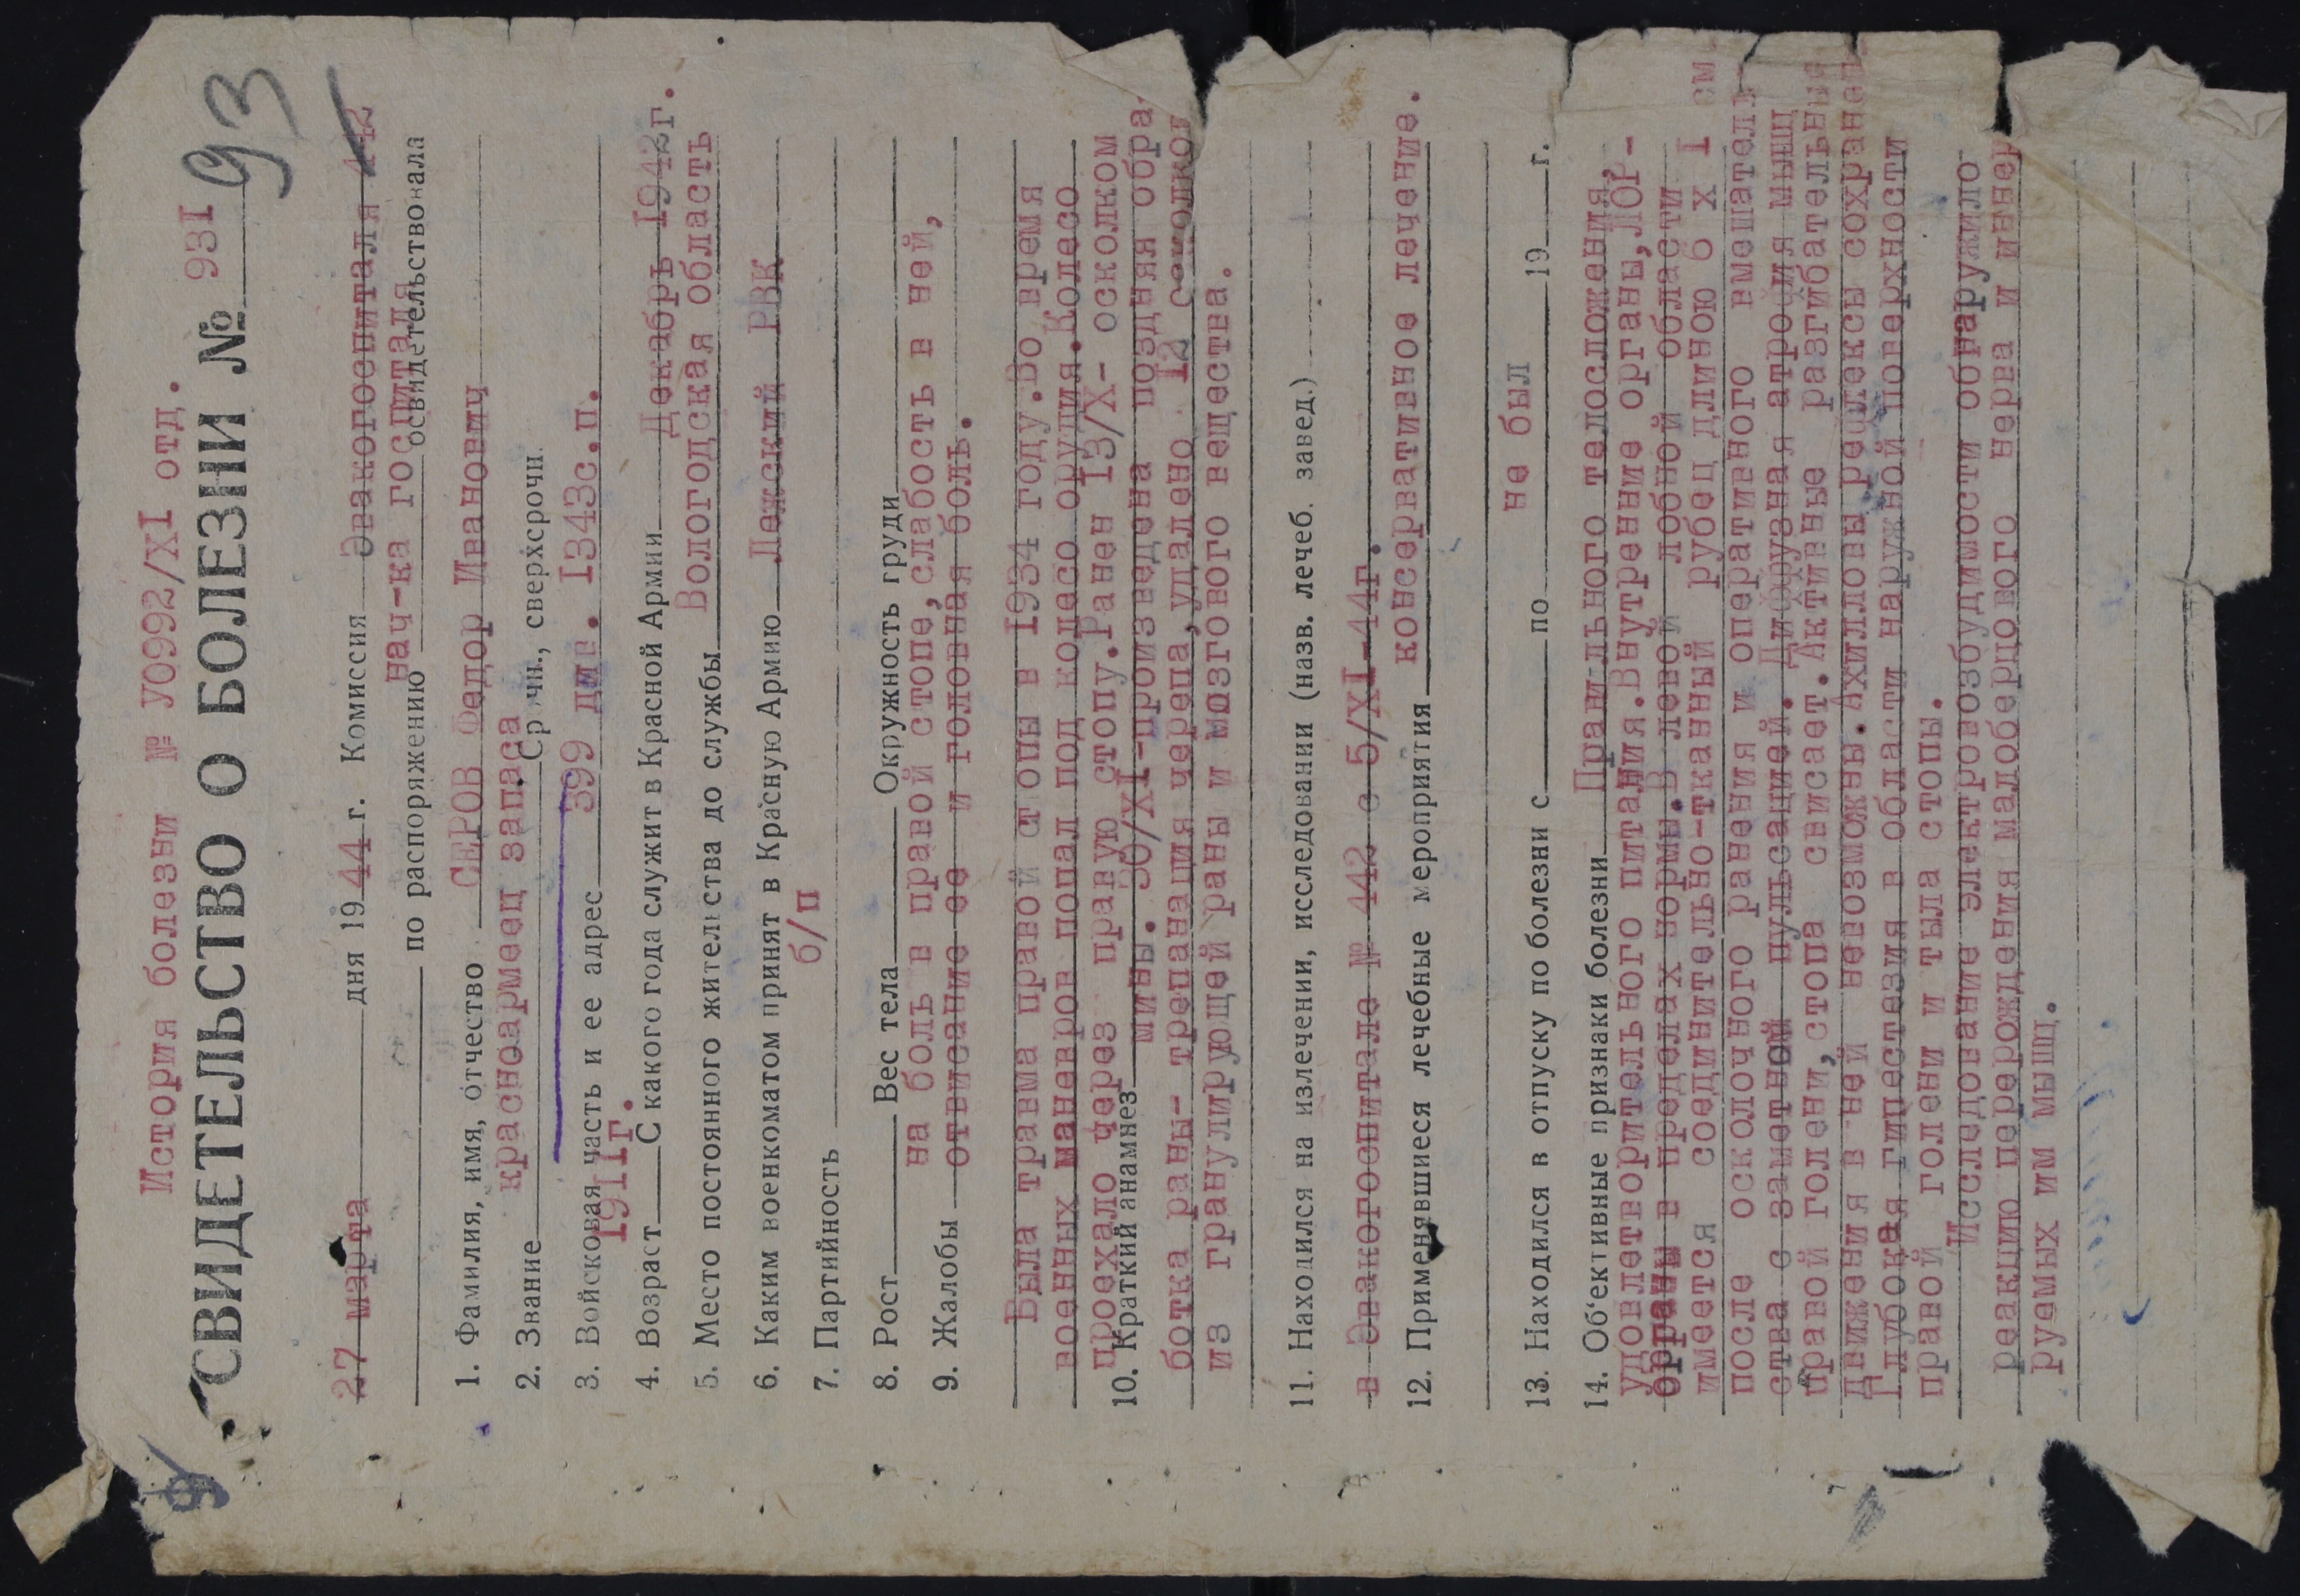 История болезни № У0992/XI отд.
СВИДЕТЕЛЬСТВО О БОЛЕЗНИ № 93I
93
27 марта дня 1944 г. Комиссия Эвакогоспиталя 442
по распоряжению нач-ка госпиталя освидетельствовала
1. Фамилия, имя, отчество СЕРОВ Федор Иванович
2. Звание красноармеец запаса Ср чн., сверхсрочн.
3. Войсковая часть и ее адрес 399 див. I343с.п.
4. Возраст I9IIг. С какого года служит в Красной Армии Декабрь I942г.
5. Место постоянного жительства до службы Вологодская область
6. Каким военкоматом принят в Красную Армию Лежский РВК
7. Партийность б/п
8. Рост Вес тела Окружность груди
9. Жалобы на боль в правой стопе, слабость в ней,
отвисание ее и головная боль.
Была травма правой стопы в I934 году. Во время
военных маневров попал под колесо орудия. Колесо
проехало через правую стопу. Ранен I3/X- осколком
10. Краткий анамнез мины. 30/XI-произведена поздняя обра
ботка раны- трепанация черепа, удалено I2 осколков
из гранулирующей раны и мозгового вещества.
11. Находился на излечении, исследовании (назв. лечеб. завед.)
в Эвакогоспитале № 442 с 5/XI-44г.
12. Применявшиеся лечебные мероприятия консервативное лечение.
13. Находился в отпуску по болезни с по не был 19 г.
14. Об'ективные признаки болезни Правильного телосложения,
удовлетворительного питания. Внутренние органы, ЛОР-
органы в пределах нормы. В левой лобной области
имеется соединительно-тканный рубец длиною 6 х I см.
после осколочного ранения и оперативного вмешатель
ства с заметной пульсацией. Диффузная атрофия мышц
правой голени, стопа свисает. Активные разгибательные
движения в ней невозможны. Ахилловы рефлексы сохранен
Глубокая гипестезия в области наружной поверхности
правой голени и тыла стопы.
Исследование электровозбудимости обнаружило
реакцию перерождения малоберцового нерва и иннер
руемых им мышц.